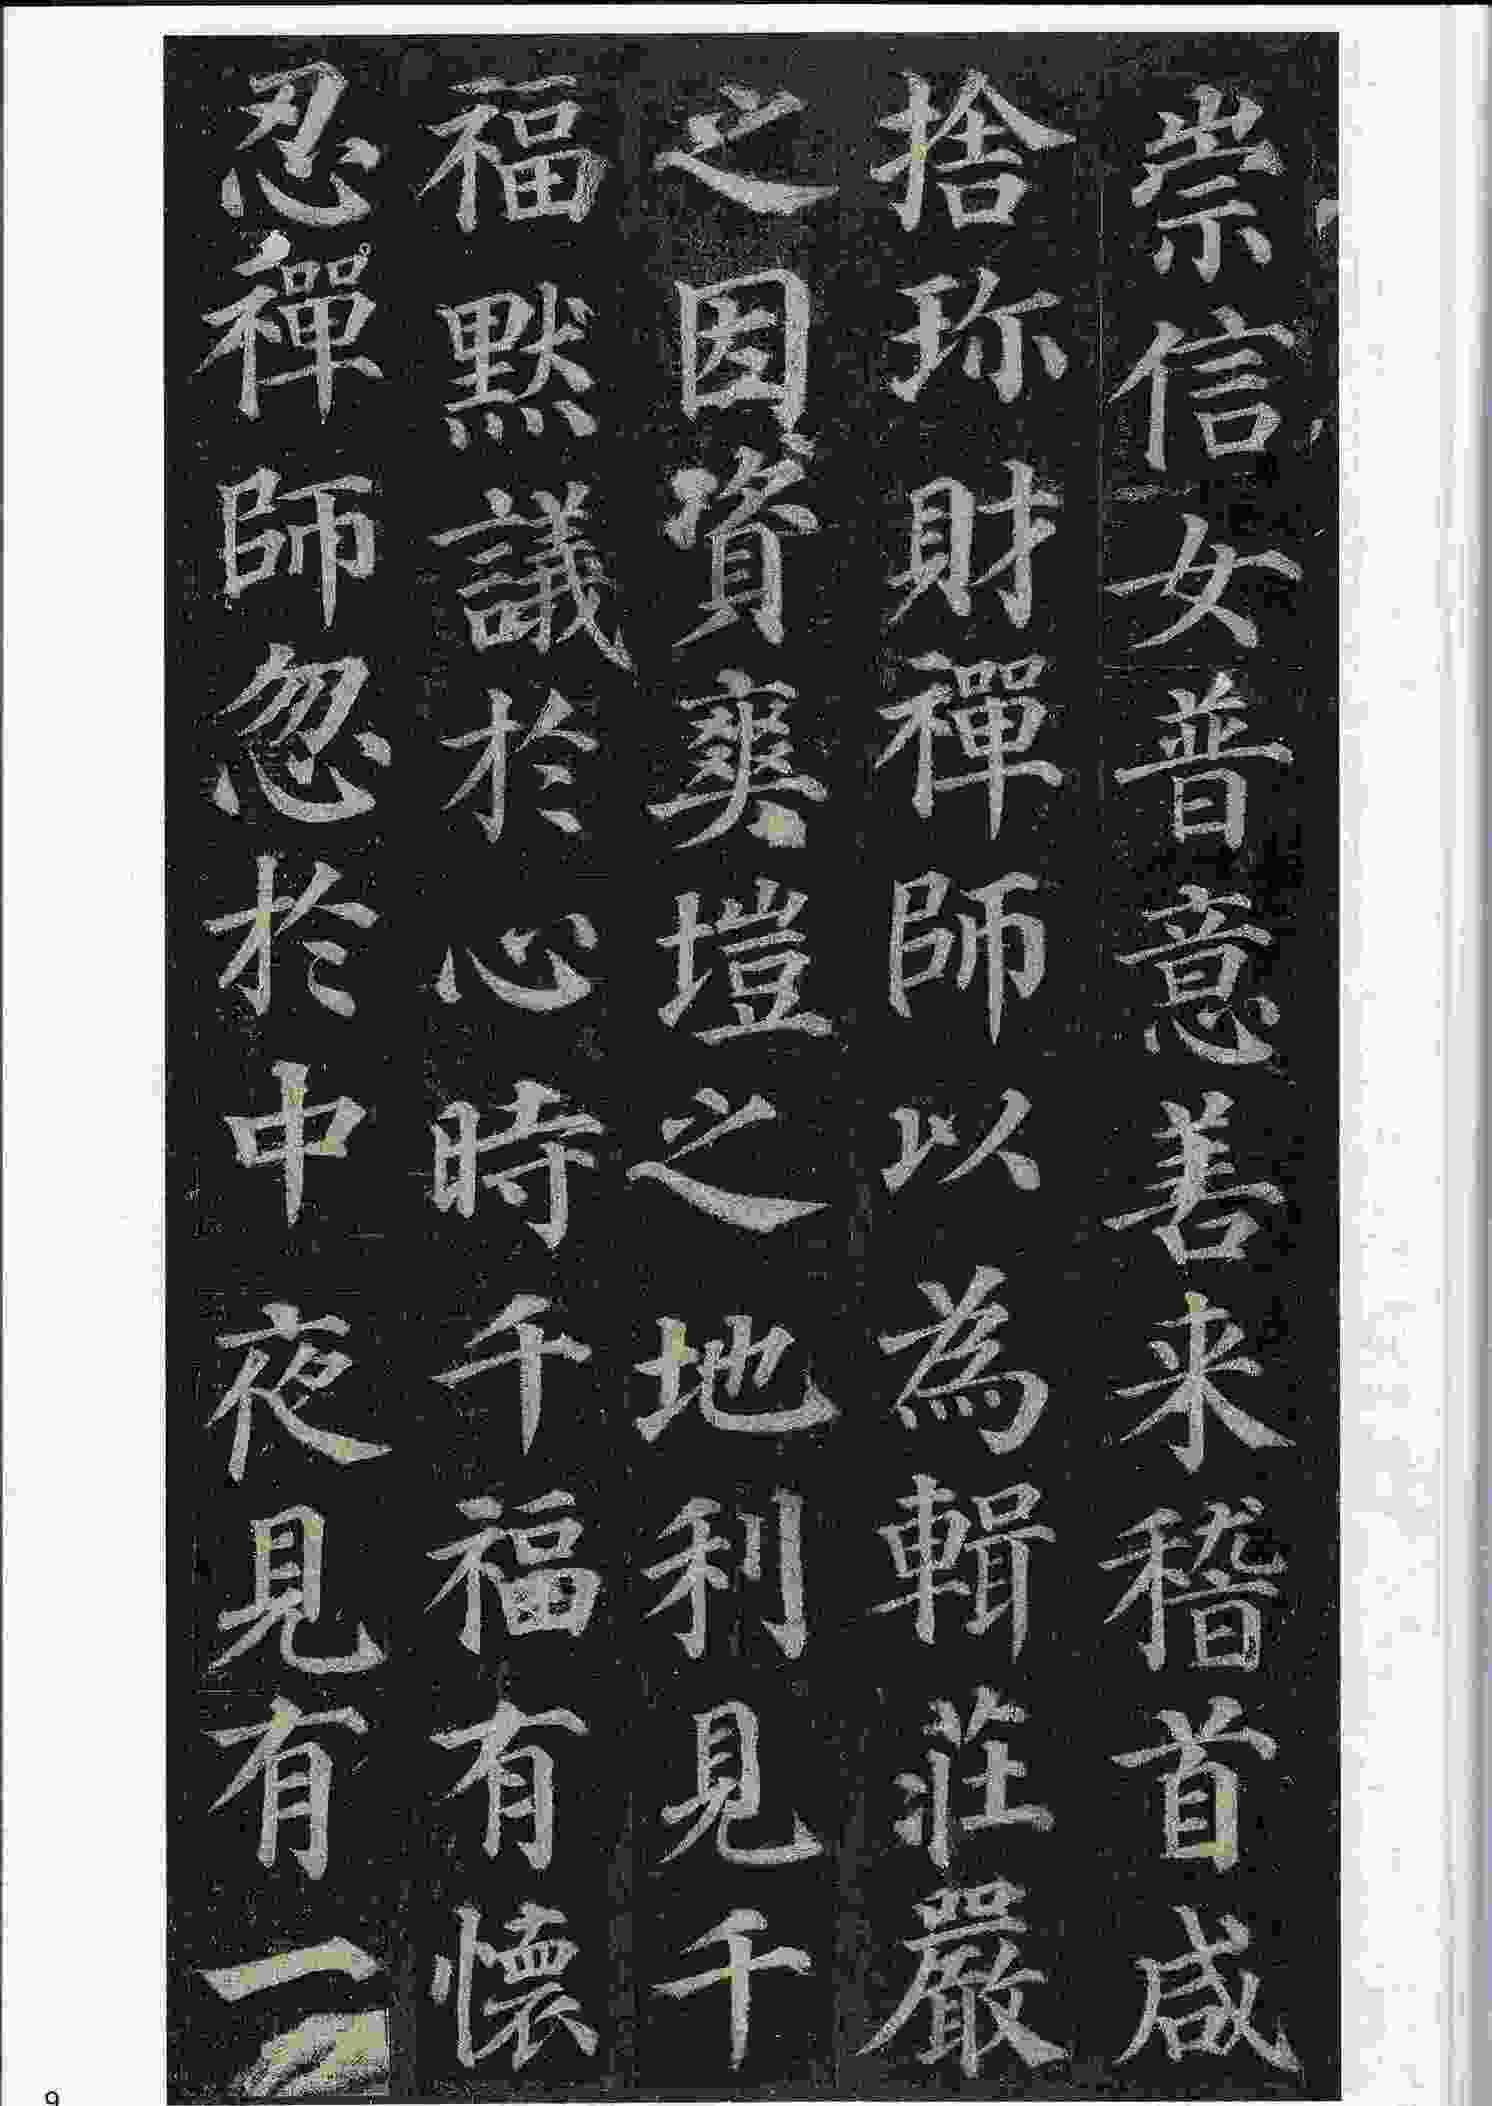 崇信女普意善来稽首咸
捨珎財禪師以為輯莊嚴
之因資爽塏之地利見千
福默議於心時千福有懷
忍禪師忽於中夜見有一
9